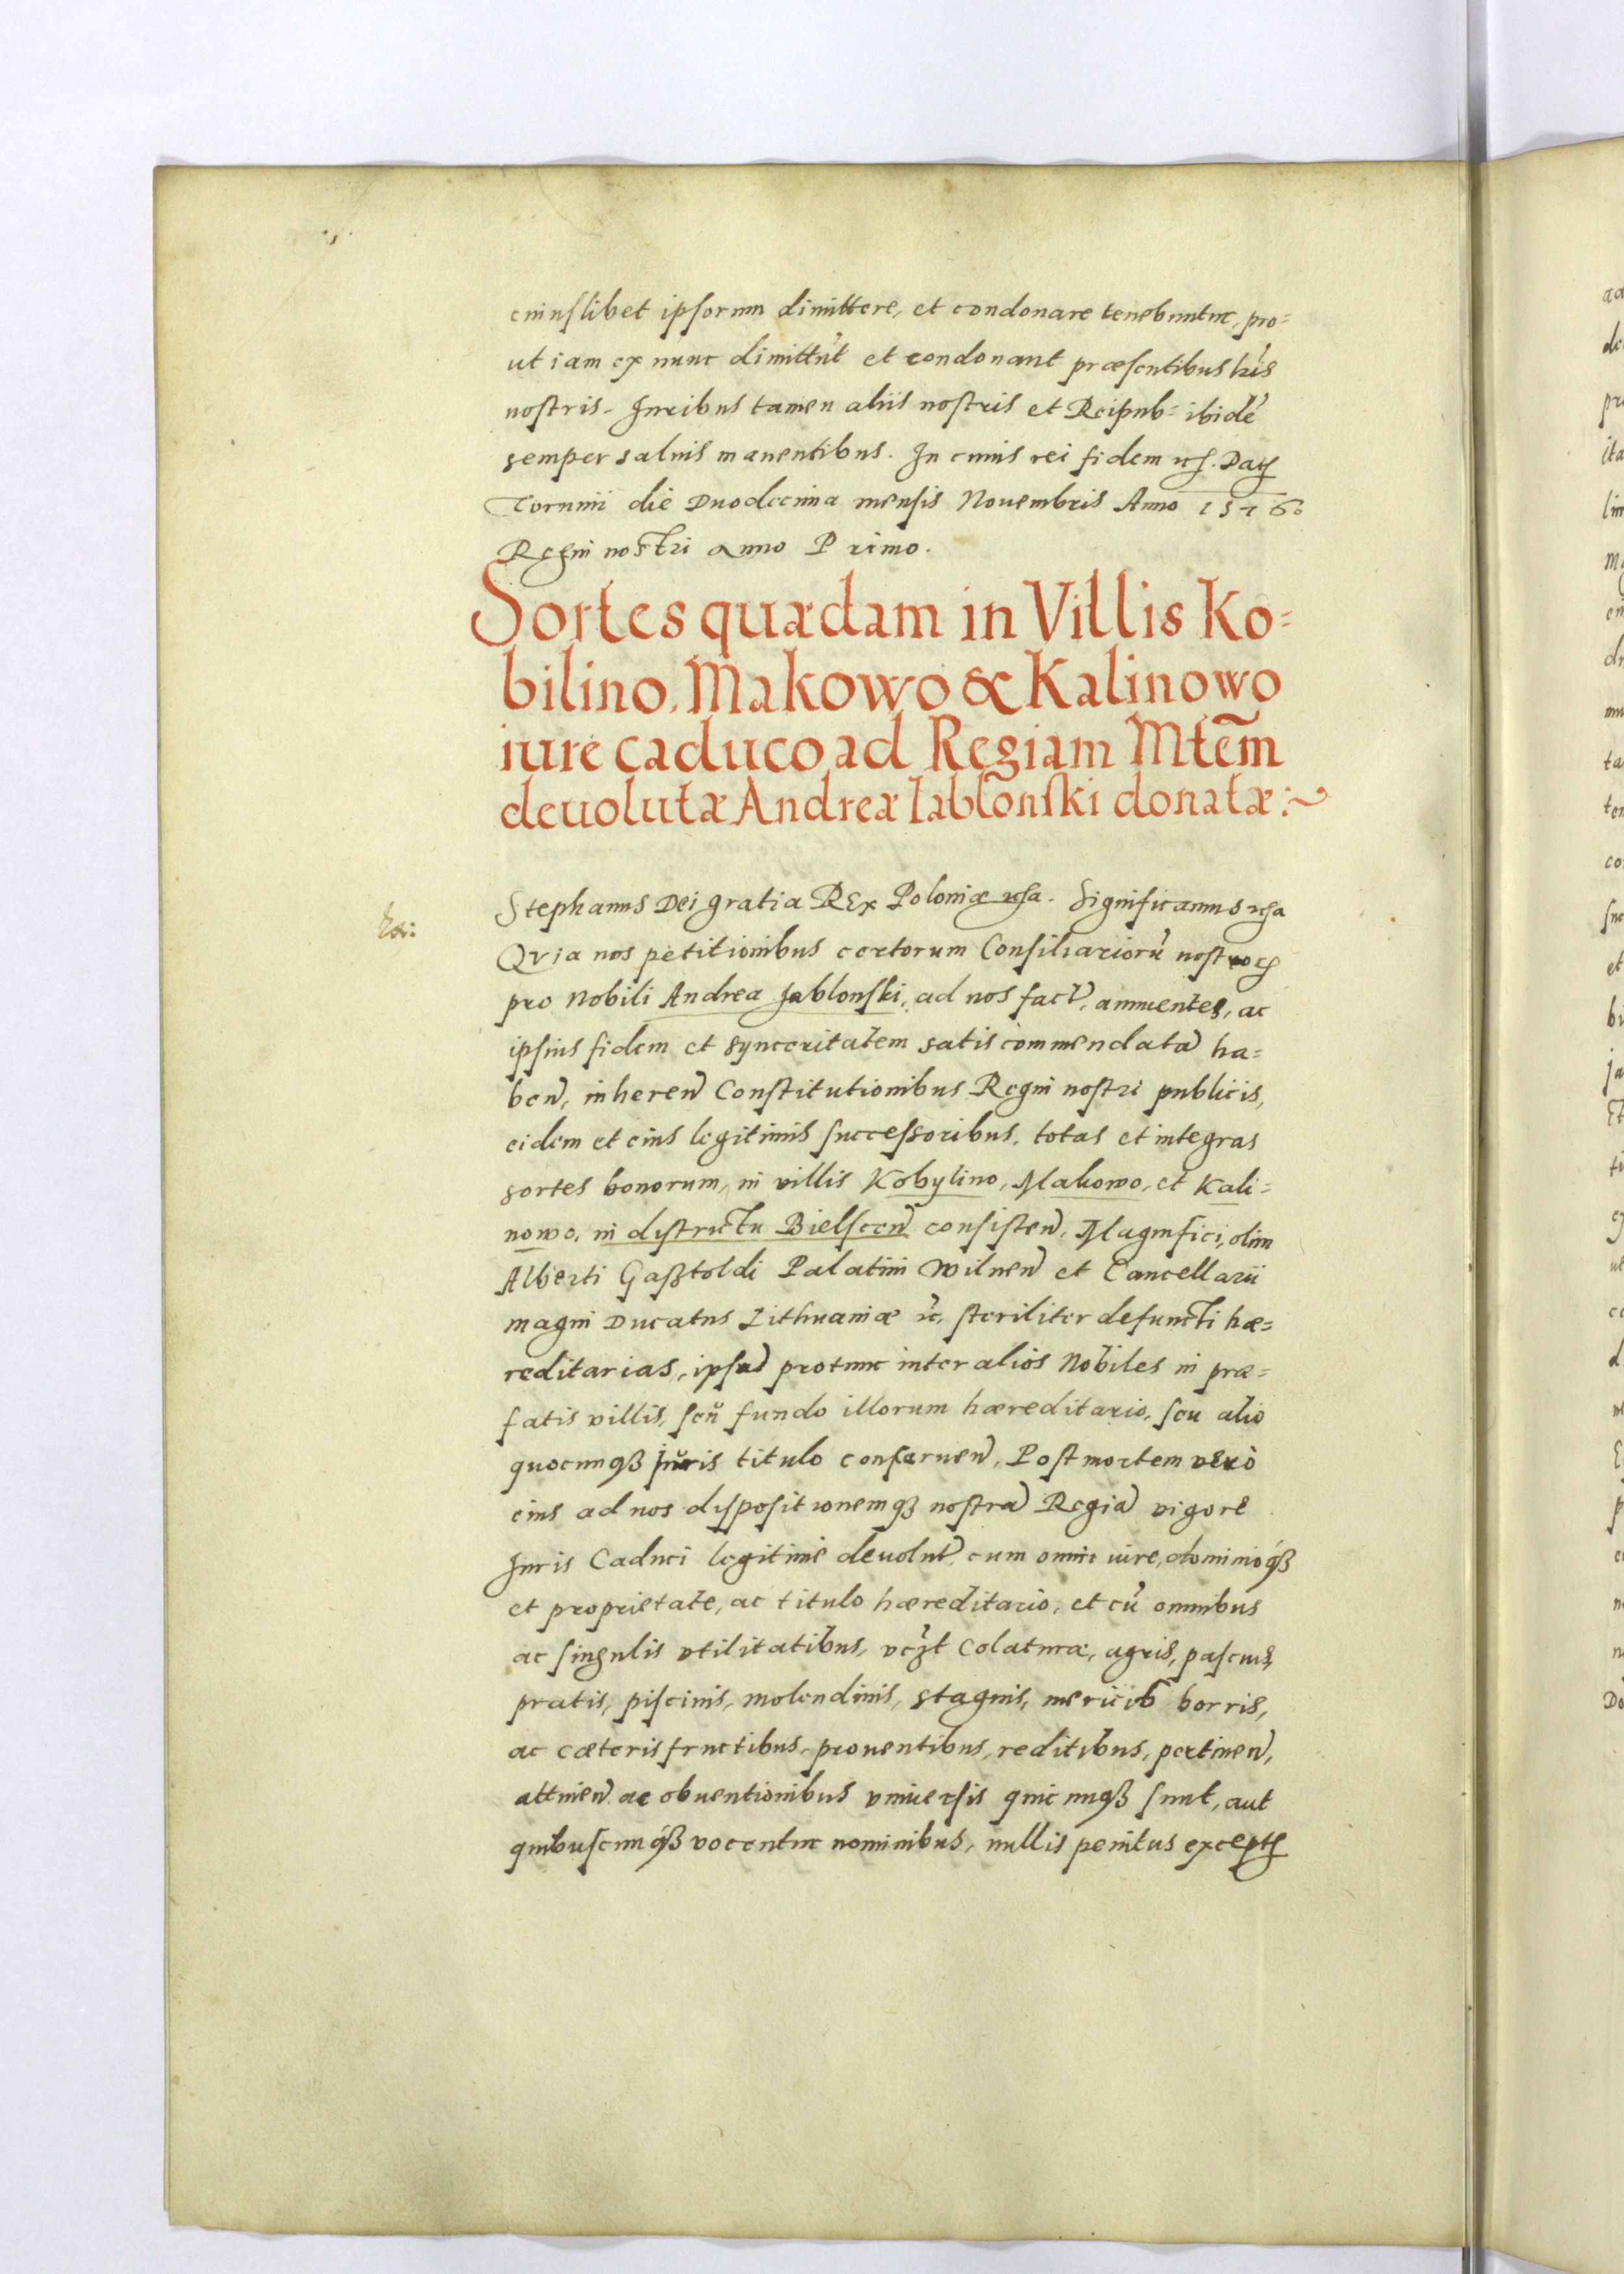 cuiuslibet ipsorum dimittere, et condonare tenebuntur, pro=
ut iam ex nunc dimittūt et condonant præsentibus lr̄is
nostris. Iuribus tamen aliis nostris et Reipub= ibidē
semper saluis manentibus. In cuius rei fidem etc. Dat
Torunii die Duodecima mensis Nouembris Anno 1576
Regni nostri anno Primo.
Sortes quædam in Villis Ko=
bilino, Makowo & Kalinowo
iure caduco ad Regiam Mtēm
deuolutæ Andreæ Iablonski donatæ:~
Stephanus Dei gratia REx Poloniæ etca. Significamus etca
Quia nos petitionibus certorum Consiliariorū nostrorum
pro Nobili Andrea Jablonski, ad nos fact, annuentes, ac
ipsius fidem et synceritatem satis commendatā ha=
ben, inheren Constitutionibus Regni nostri publicis,
eidem et eius legitimis successoribus, totas et integras
sortes bonorum, in villis Kobylino, Makowo, et Kali=
nowo, in districtu Bielscen consisten, Magnifici, olim
Alberti Gasztoldi Palatini Wilnen et Cancellarii
magni Ducatus Lithuaniæ etc. steriliter defuncti hæ=
reditarias, protunc inter alios Nobiles in præ=
fatis villis, seū fundo illorum hæreditario, seu alio
quocunqz iuris titulo conseruien, Post mortem vero
eius ad nos dispositionemqz nostrā Regiā vigore
Iuris Caduci legitime deuolut, cum omni iure, dominioqz
et proprietate, ac titulo hæreditario, et cū omnibus
ac singulis vtilitatibus, vczt Colaturæ, agris, pascuis,
pratis, piscinis, molendinis, stagnis, mericib borris,
ac cæteris fructibus, prouentibus, reditibus, pertinen,
attinen ac obuentionibus vniuersis quicunqz sunt, aut
quibuscunqz vocentur nominibus, nullis penitus except